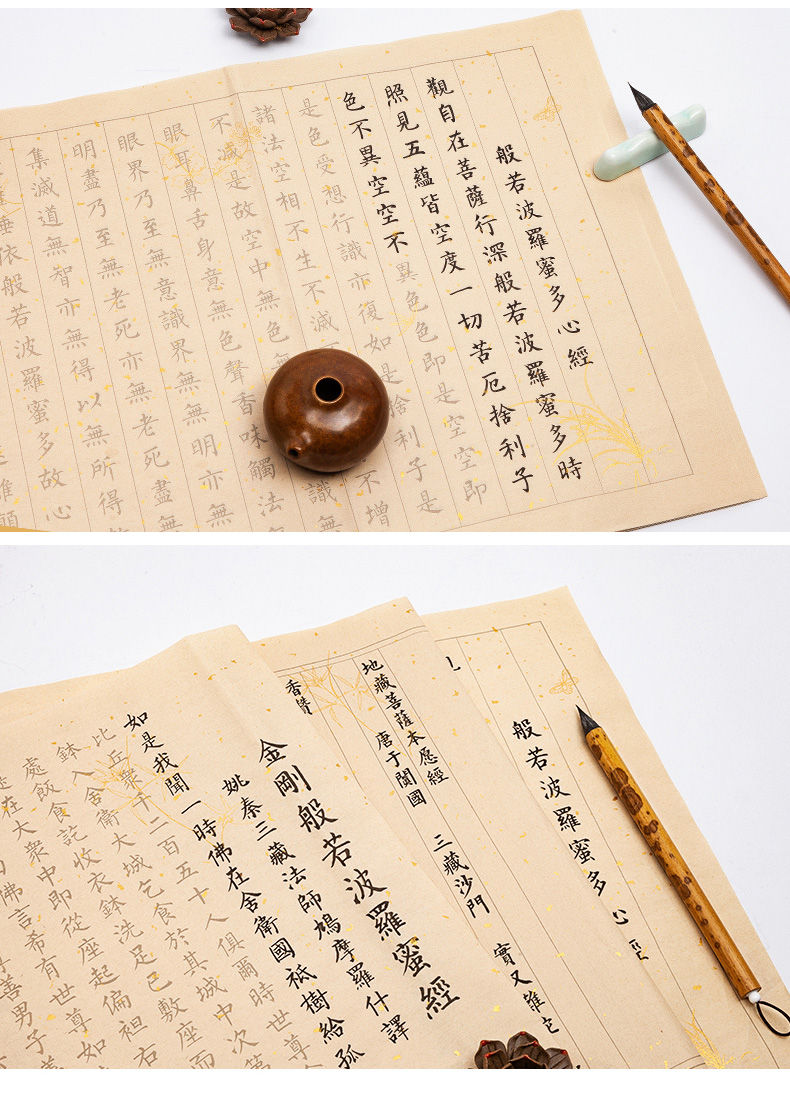 般若波羅蜜多心經
觀自在菩薩行深般若波羅蜜多時
照見五蘊皆空度一切苦厄捨利子
色不異空空不異色色即是空空即
是色受想行識亦復如是捨利子是
諸法空相不生不滅不增
不減是故空中無色識無
眼耳鼻舌身意無色聲香味觸法無
眼界乃至無意識界無無明亦無
明盡乃至無老死亦無老死盡無
集滅道無智亦無得以無所得
埵依般若波羅蜜多故心
離顛
般若波羅蜜多心
地藏菩薩本愿經
唐于闐國 三藏沙門 實叉難
香赞
金剛般若波羅蜜經
姚秦三藏法師鳩摩羅什譯
如是我聞一時佛在舍衛國祇樹給孤
比丘眾千二百五十人俱爾時世尊
鉢入舍衛大城乞食於其城中次第
處飯食訖收衣鉢洗足已敷座而
在大眾中即從座起偏袒右
佛言希有世尊如
善男子善